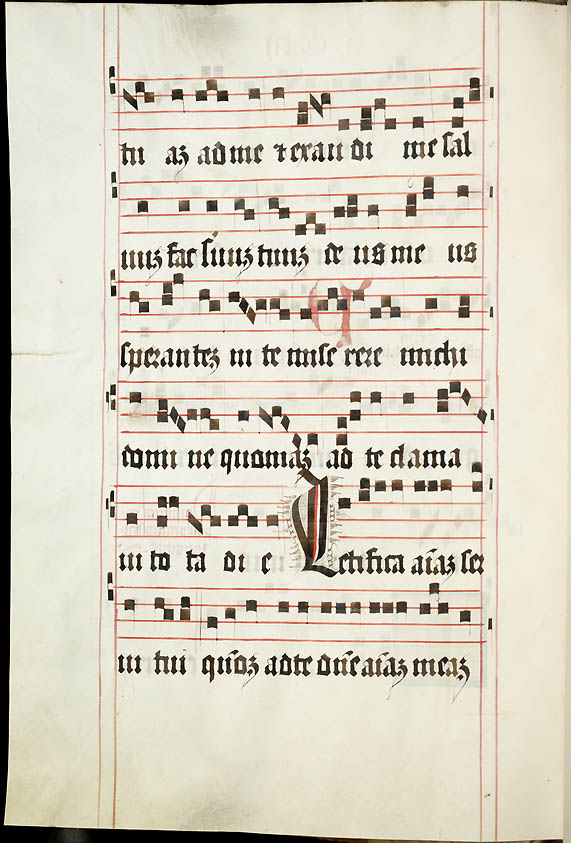 tu aȝ ad me ⁊ exau di me sal
uuȝ fac ſuuȝ tuuȝ de us me us
speranteȝ in te miſe rere michi
domi ne quoniaȝ ad te clama
ui to ta di e Letifica aīaȝ ser
ui tui qm̄oȝ ad te dn̄e aīaȝ meaȝ